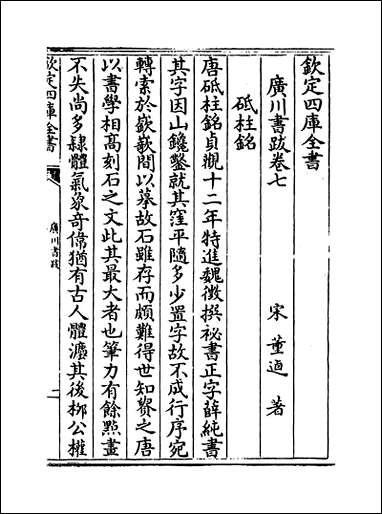 欽定四庫全書
廣川書跋卷七
宋 董逌 著
砥柱銘
唐砥柱銘貞觀十二年特進魏徵撰祕書正字薛純書
其字因山鑱鑿就其窪平隨多少置字故不成行序宛
轉索於嶔嶔間以摹故石雖存而頗難得世知貴之唐
以書學相高刻石之文此其最大者也筆力有餘點畫
不失尚多隸體氣象奇偉猶有古人體灋其後栁公權
欽定四庫全書
廣川書跋